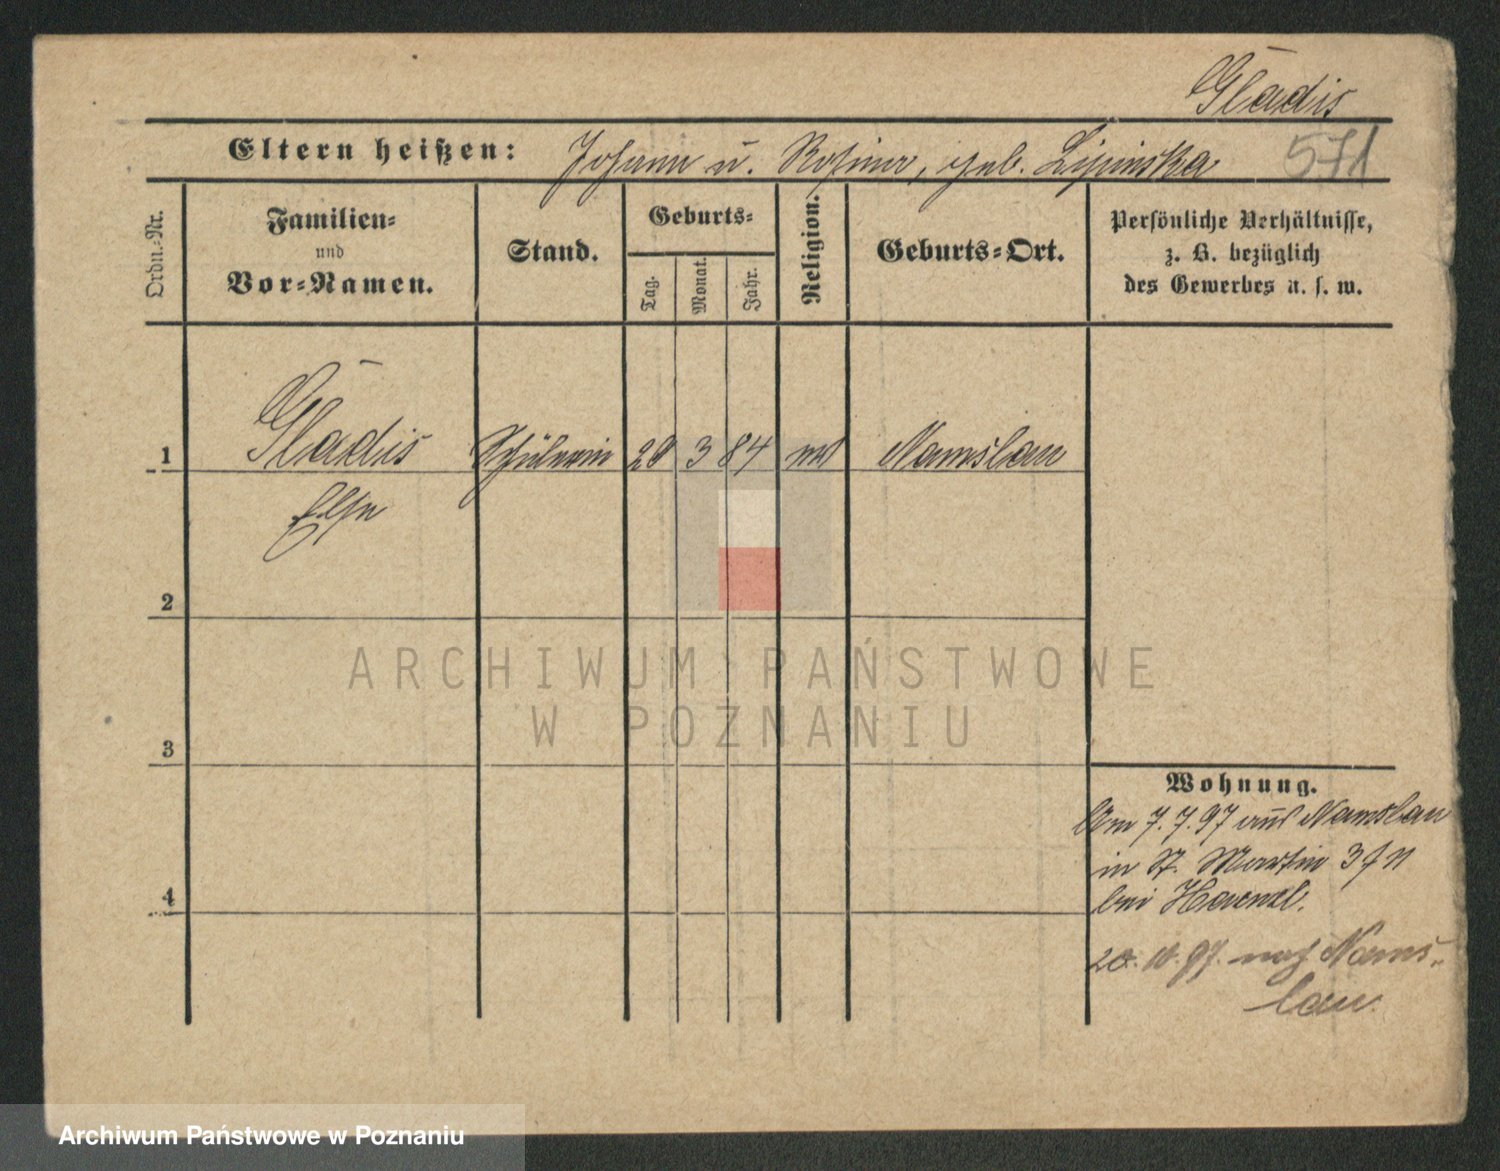 Gladis
Eltern heißen: Johann u. Rosina, geb. Lipinska 571
Ordn.-Nr.
Familien-
und
Vor-Namen.
Stand.
Geburts-
Tag.
Monat.
Jahr.
Religion.
Geburts-Ort.
Persönliche Verhältnisse,
z. B. bezüglich
des Gewerbes u. s. w.
1 Gladis Schülerin 3 84 Namslau
Else
2
3
4
Wohnung.
Am 7.7.97 aus Namslau
in St. Martin
bei
20.10.97. nach Nams-
lau.
ARCHIWUM PAŃSTWOWE
W POZNANIU
Archiwum Państwowe w Poznaniu